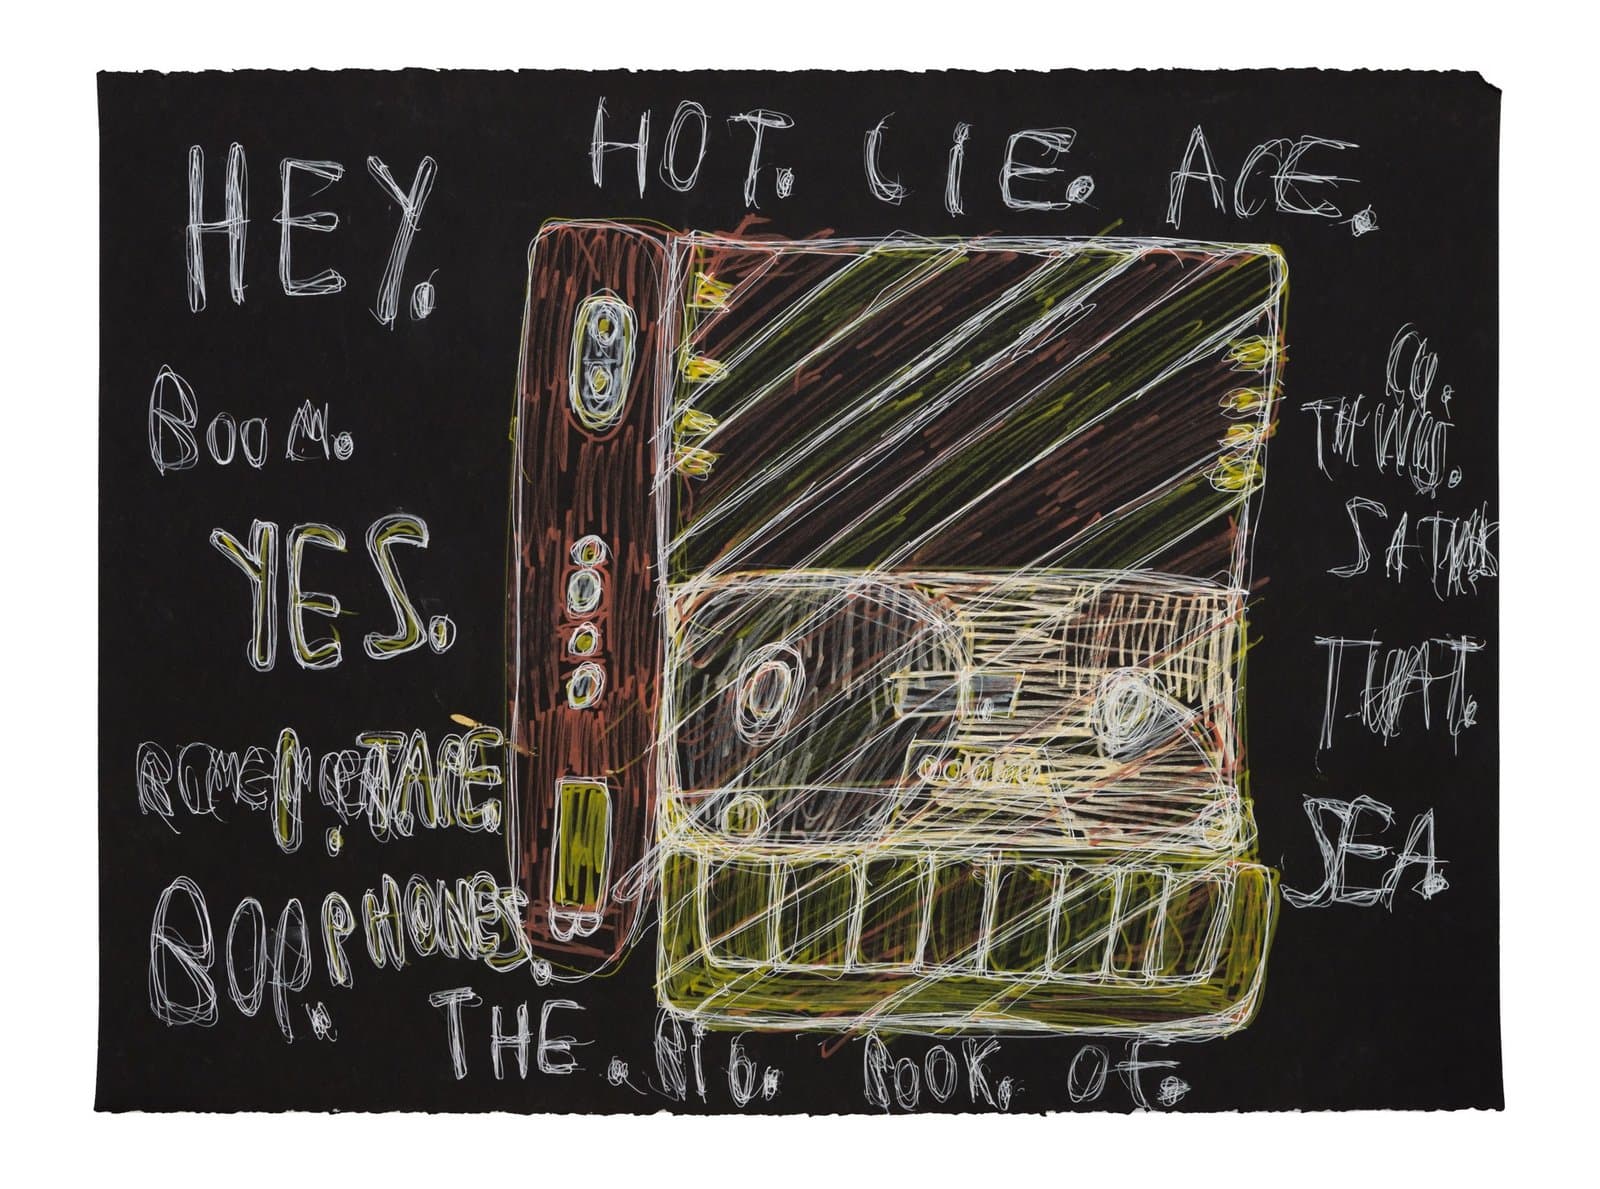 HEY.
HOT. LIE. ACE.
BooM.
YES.
TAPE
BOP.. PHONES.
THE. BIG. BOOK. OF.
THAT.
SEA.